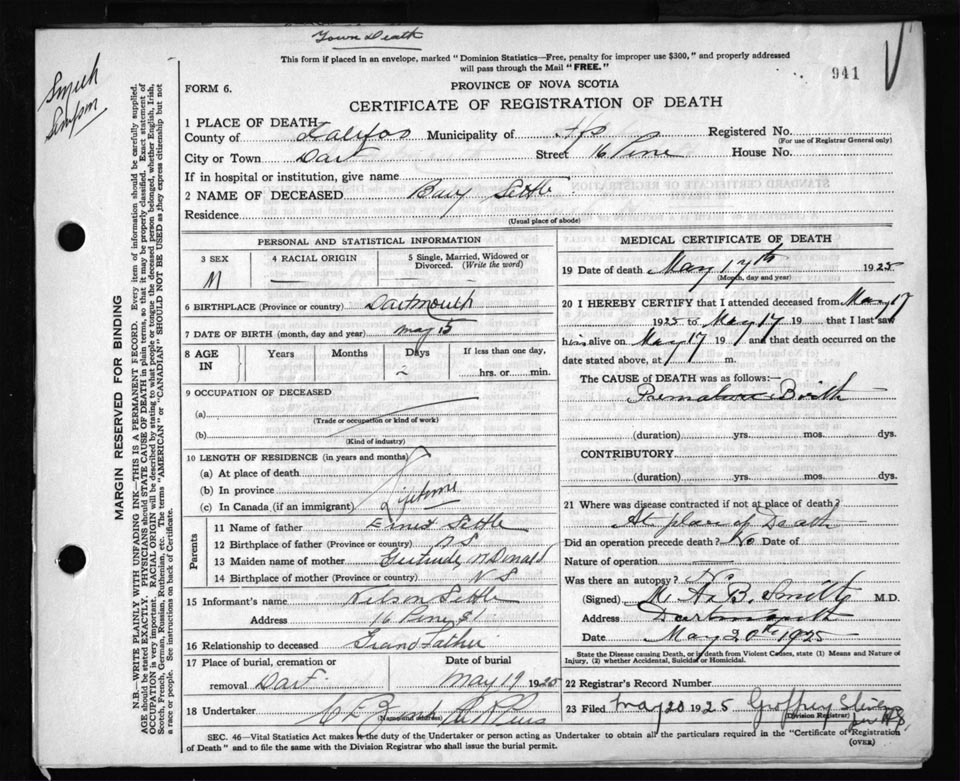 Town Death
This form if placed in an envelope, marked "Dominion Statistics—Free, penalty for improper use $300," and properly addressed
will pass through the Mail "FREE."
941
Smith
Simpson
FORM 6.
PROVINCE OF NOVA SCOTIA
CERTIFICATE OF REGISTRATION OF DEATH
1 PLACE OF DEATH
County of Halifax Municipality of Registered No.
(For use of Registrar General only)
City or Town Dart Street 16 Pine House No.
If in hospital or institution, give name
2 NAME OF DECEASED Baby Settle
Residence
(Usual place of abode)
PERSONAL AND STATISTICAL INFORMATION
3 SEX
M
4 RACIAL ORIGIN
5 Single, Married, Widowed or
Divorced. (Write the word)
6 BIRTHPLACE (Province or country) Dartmouth
7 DATE OF BIRTH (month, day and year) May 15
8 AGE IN
Years Months Days
2
If less than one day,
hrs. or min.
9 OCCUPATION OF DECEASED
(a)
(Trade or occupation or kind of work)
(b)
(Kind of industry)
10 LENGTH OF RESIDENCE (in years and months)
(a) At place of death
(b) In province
(c) In Canada (if an immigrant) Lifetime
Parents
11 Name of father Ernest Settle
12 Birthplace of father (Province or country) N S
13 Maiden name of mother Gertrude McDonald
14 Birthplace of mother (Province or country) N S
15 Informant's name Nelson Settle
Address 16 Pine St
16 Relationship to deceased Grand Father
17 Place of burial, cremation or Date of burial
removal Dart May 19 1925
18 Undertaker
(Name and address)
MEDICAL CERTIFICATE OF DEATH
19 Date of death May 17th 1925
(Month, day and year)
20 I HEREBY CERTIFY that I attended deceased from May 17
1925 to May 17 19 that I last saw
him alive on May 17 19 and that death occurred on the
date stated above, at m.
The CAUSE OF DEATH was as follows:
Premature Birth
(duration) yrs. mos. dys.
CONTRIBUTORY
(duration) yrs. mos. dys.
21 Where was disease contracted if not at place of death?
At place of Death
Did an operation precede death? No Date of
Nature of operation
Was there an autopsy? No
(Signed) M. A. B. Smith M.D.
Address Dartmouth
Date May 20th 1925
State the Disease causing Death, or in death from Violent Causes, state (1) Means and Nature of
Injury, (2) whether Accidental, Suicidal or Homicidal.
22 Registrar's Record Number
23 Filed May 20 1925 Geoffrey
(Division Registrar)
SEC. 46—Vital Statistics Act makes it the duty of the Undertaker or person acting as Undertaker to obtain all the particulars required in the "Certificate of Registration
of Death" and to file the same with the Division Registrar who shall issue the burial permit.
(OVER)
MARGIN RESERVED FOR BINDING
N.B.—WRITE PLAINLY WITH UNFADING INK—THIS IS A PERMANENT RECORD. Every item of information should be carefully supplied.
AGE should be stated EXACTLY. PHYSICIANS should STATE CAUSE OF DEATH in plain terms, so that it may be properly classified. Exact statement of
OCCUPATION is very important. RACIAL ORIGIN will be described by stating to what people or tongue the deceased person belonged, whether English, Irish,
Scotch, French, German, Russian, Ruthenian, etc. The terms "AMERICAN" or "CANADIAN" SHOULD NOT BE USED as they express citizenship but not
a race or people. See instructions on back of Certificate.